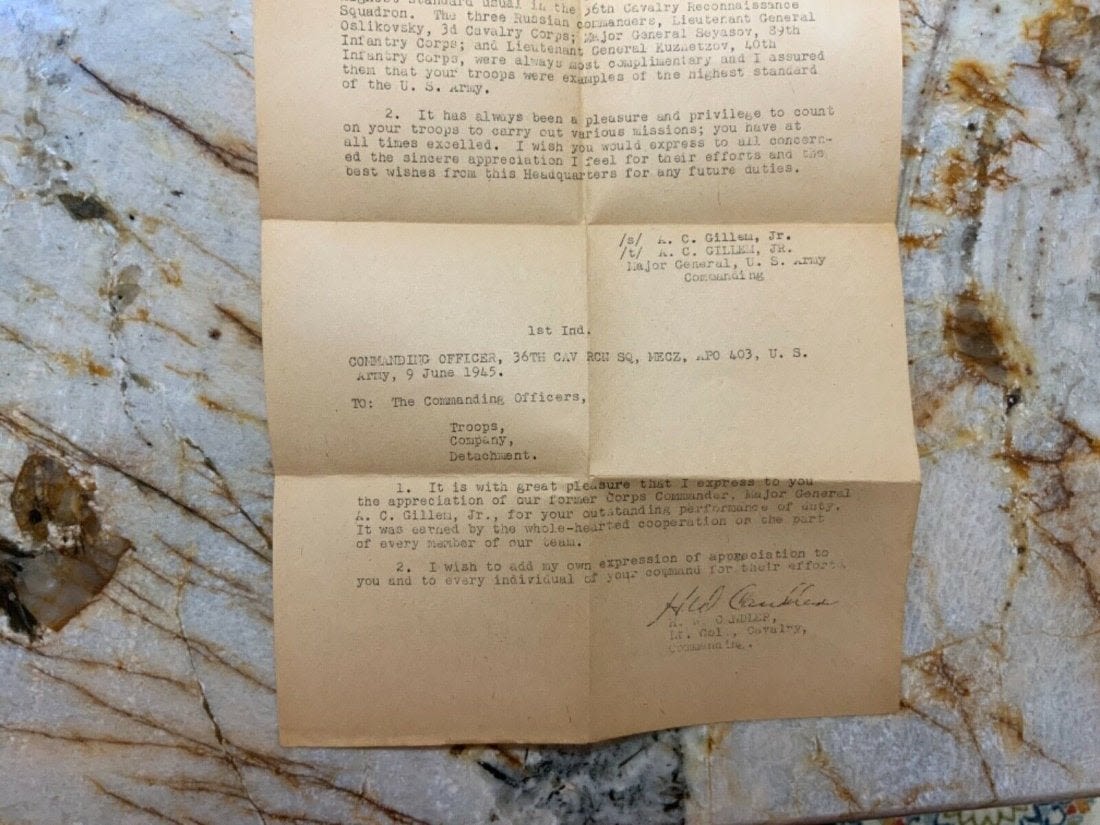 highest standard usual in the 36th Cavalry Reconnaissance
Squadron. The three Russian commanders, Lieutenant General
Oslikovsky, 3d Cavalry Corps; Major General Seyasov, 89th
Infantry Corps; and Lieutenant General Kuznetzov, 40th
Infantry Corps, were always most complimentary and I assured
them that your troops were examples of the highest standard
of the U. S. Army.
2. It has always been a pleasure and privilege to count
on your troops to carry out various missions; you have at
all times excelled. I wish you would express to all concern-
ed the sincere appreciation I feel for their efforts and the
best wishes from this Headquarters for any future duties.
/s/ A. C. Gillem, Jr.
/t/ A. C. GILLEM, JR.
Major General, U. S. Army
Commanding
1st Ind.
COMMANDING OFFICER, 36TH CAV RCN SQ, MECZ, APO 403, U. S.
Army, 9 June 1945.
TO: The Commanding Officers,
Troops,
Company,
Detachment.
1. It is with great pleasure that I express to you
the appreciation of our former Corps Commander, Major General
A. C. Gillem, Jr., for your outstanding performance of duty.
It was earned by the whole-hearted cooperation on the part
of every member of our team.
2. I wish to add my own expression of appreciation to
you and to every individual of your command for their efforts.
Lt. Col., Cavalry,
Commanding.